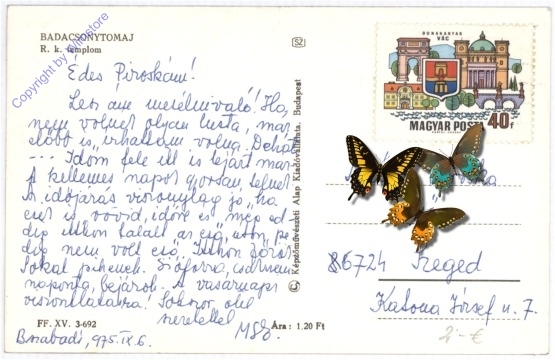 BADACSONYTOMAJ
R. k. templom
Copyright by Altostore
Édes Piroskám!
Les áme mesélnivaló! Ha
nem volnék olyan lusta, már
előbb is írhattam volna. Dehát
--- Időm fele ill is lejárt már
A kellemes napok gyorsan telnek
A időjárás viszonylag jó, ha
esik is, rövid időre is még ed-
dig itthon talált az eső, úton pe-
dig nem volt eső. Itthon
sokat pihenek. Siófokra, csaknem
naponta bejárok. A vasárnapi
viszontlátásra! Sokszor ölel
szeretettel
Bszabadi, 975. IX. 6.
FF. XV. 3-692
Ára: 1.20 Ft
SZ
Képzőművészeti Alap Kiadóvállalata, Budapest
DUNAKANYAR
VÁC
MAGYAR POSTA 40f
6724 Szeged
Katona József u. 7.
2.- €